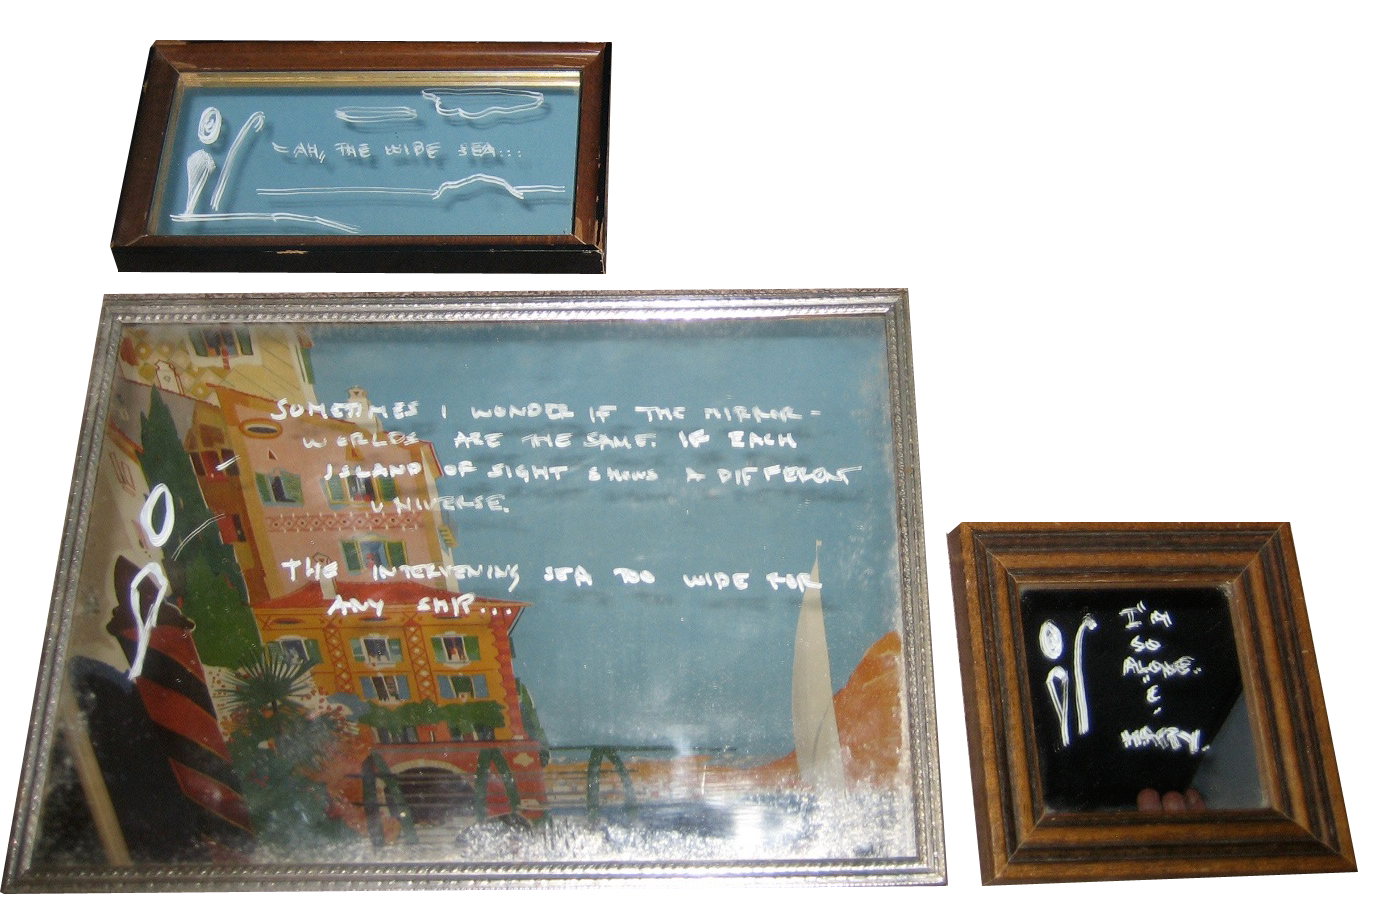 "AH, THE WIDE SEA...
SOMETIMES I WONDER IF THE MIRROR-
WORLDS ARE THE SAME. IF EACH
ISLAND OF SIGHT SHOWS A DIFFERENT
UNIVERSE.
THE INTERVENING SEA TOO WIDE FOR
ANY SHIP...
I'M
SO
ALONE.
&
HAPPY.